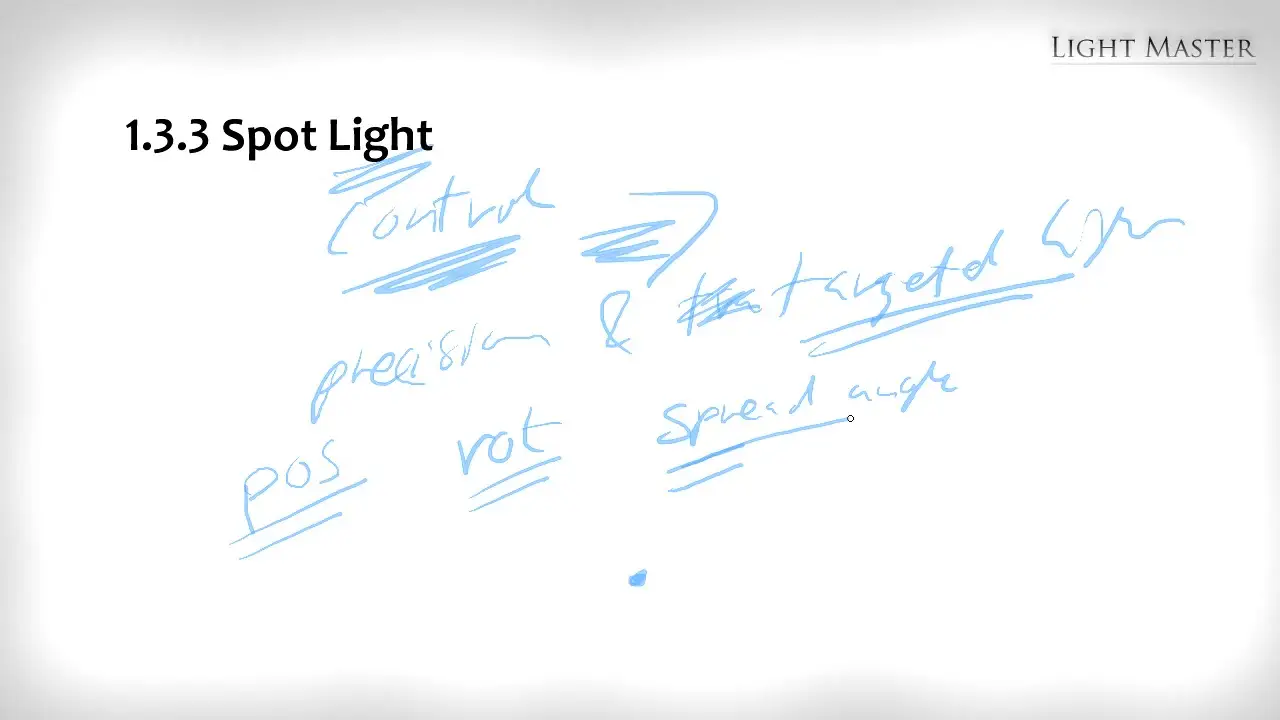 LIGHT MASTER
1.3.3 Spot Light
Control
precision & targetd
pos rot spread angle